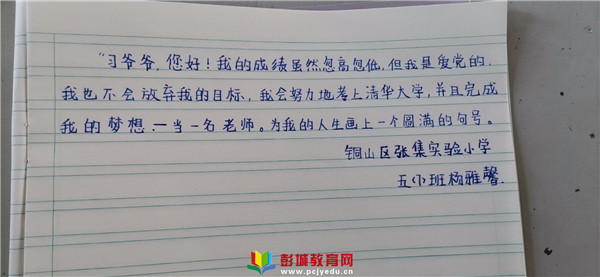 “习爷爷，您好！我的成绩虽然忽高忽低，但我是爱党的，
我也不会放弃我的目标，我会努力地考上清华大学，并且完成
我的梦想一当一名老师。为我的人生画上一个圆满的句号。
铜山区张集实验小学
五（1）班杨雅馨
彭城教育网
www.pcjyedu.cn